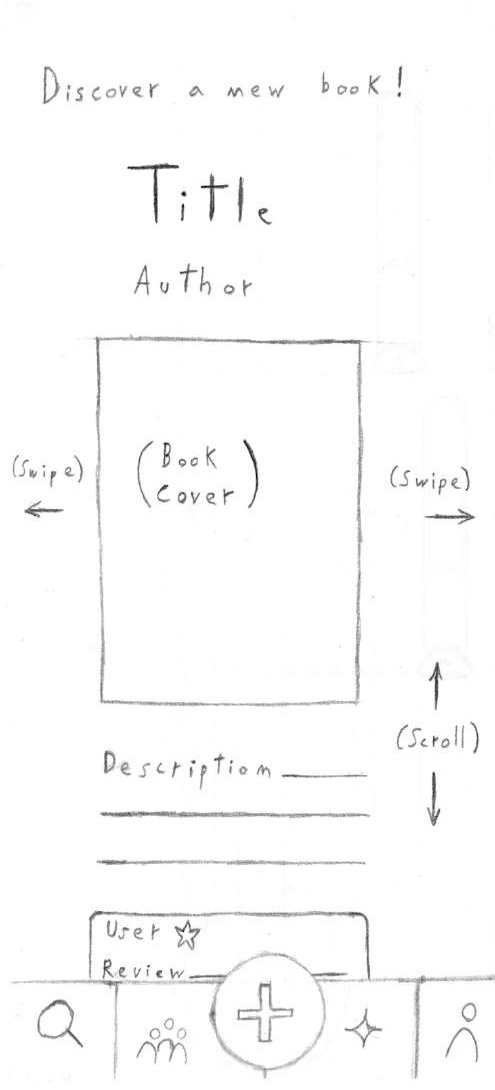 Discover a new book!
Title
Author
(Swipe)
(Book
Cover)
(Swipe)
(Scroll)
Description
User
Review